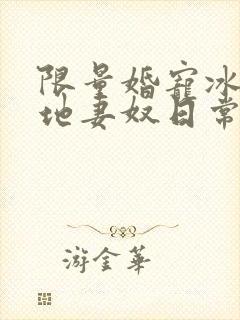 限量婚寵冰
地妻奴日常
游金華